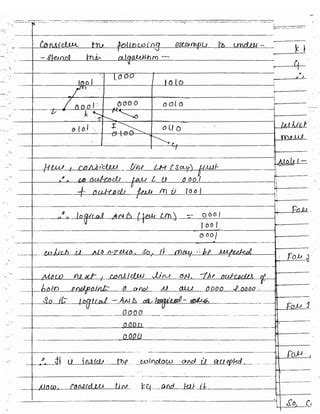 Consider the following example to under-
-stand this algorithm —
1001 1000 1010
M
L 0001 0000 0010
K N
0101 I 0100 0110
Here, consider line LM (say) first
∴ outcode for L is 0001
+ outcode for M is 1001
∴ logical AND (for LM) = 0001
1001
0001
which is Non-zero. So, it may be rejected
Now next, consider line ON. The outcodes of
both endpoints O and N are 0000 & 0000.
So its logical - AND
0000
0000
0000
∴ It is inside the window and is accepted.
Now, consider line and test it.
So,